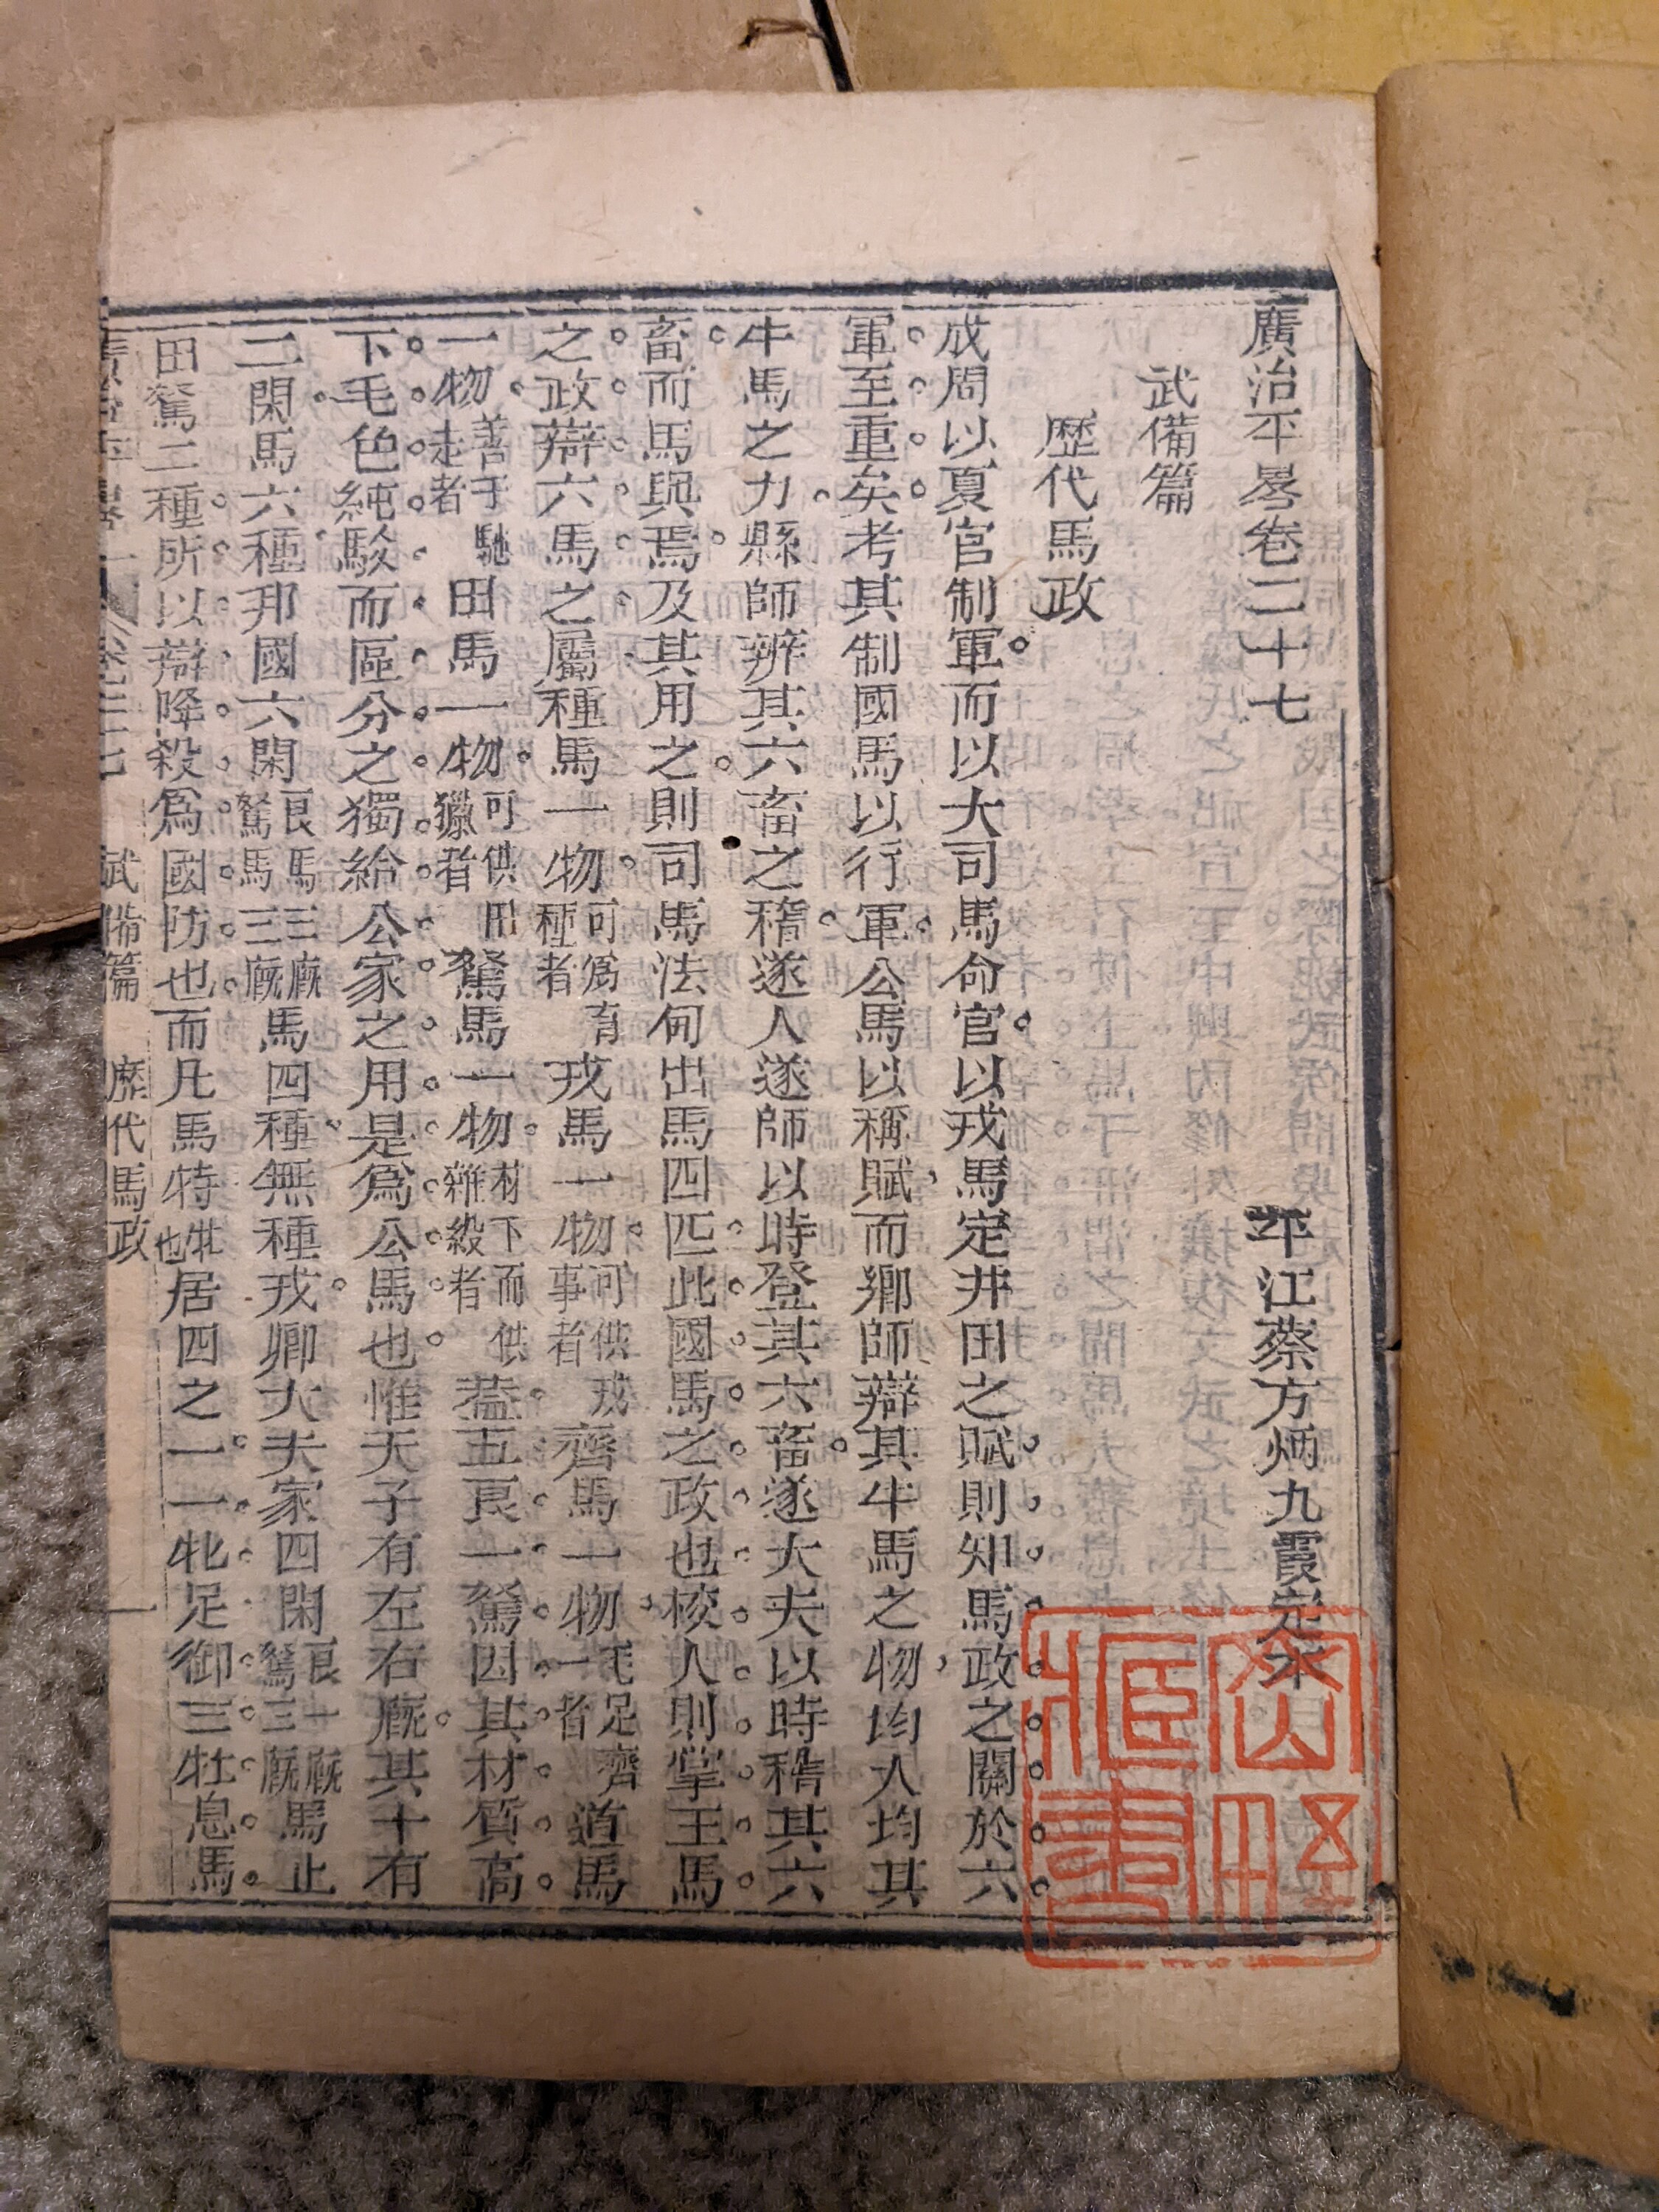 廣治平畧卷二十七 平江蔡方炳九霞定本
武備篇
歷代馬政
成周以夏官制軍而以大司馬命官以戎馬定井田之賦則知馬政之關於六
軍至重矣考其制國馬以行軍公馬以稱賦而鄉師辯其牛馬之物均人均其
牛馬之力縣師辨其六畜之稽遂人遂師以時登其六畜遂大夫以時稽其六
畜而馬與焉及其用之則司馬法甸出馬四匹此國馬之政也校人則掌王馬
之政辯六馬之屬種馬一物可爲育種者戎馬一物可供戎事者齊馬一物毛足齊一者道馬
一物善于馳走者田馬一物可供田獵者駑馬一物材下而供雜殺者葢五良一駑因其材質高
下毛色純駁而區分之獨給公家之用是爲公馬也惟天子有左右廐其十有
二閑馬六種邦國六閑良馬三廐駑馬三廐馬四種無種戎卿大夫家四閑良一廐駑三廐馬止
田駑二種所以辯降殺爲國防也而凡馬特牡也居四之一一牝足御三牡息馬
廣治平畧 卷二十七 武備篇 歷代馬政 一
臣書